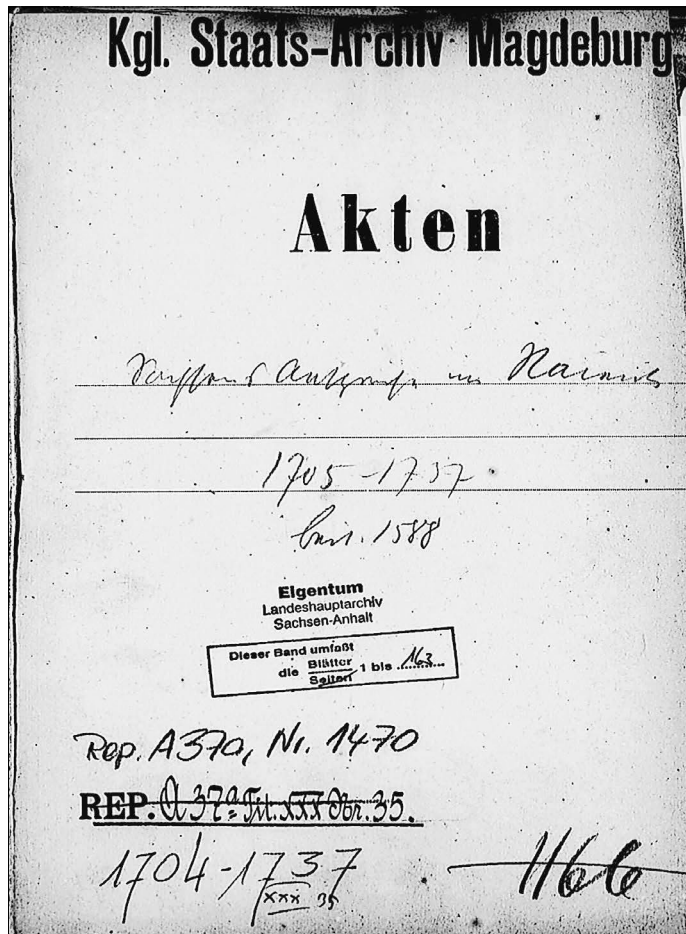 Kgl. Staats-Archiv Magdeburg
Akten
1705-1737
1588
Eigentum
Landeshauptarchiv
Sachsen-Anhalt
Dieser Band umfaßt
die Blätter
Seiten 1 bis 163
Rep. A37a, Nr. 1470
REP. A 37a Tit. XXX Nr. 35.
1704-1737
XXX 35
1166